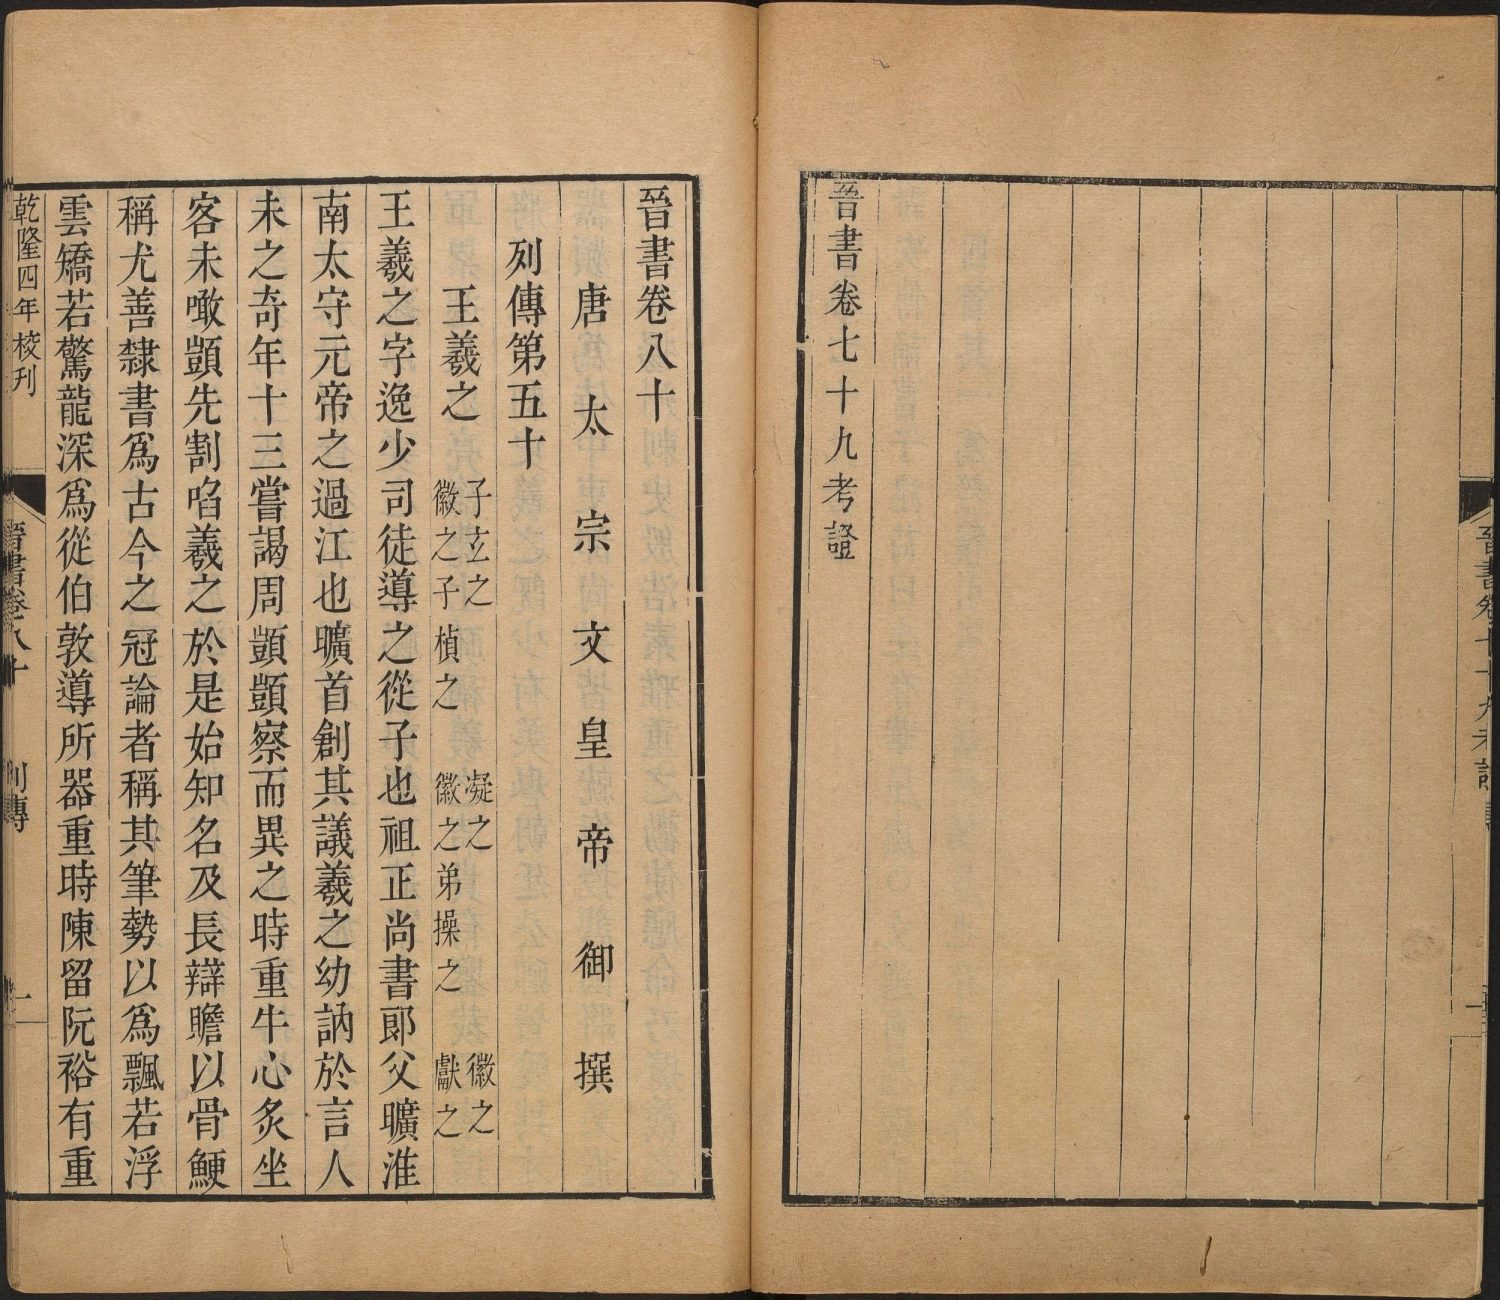 晉書卷七十九考證
晉書卷八十
唐太宗文皇帝御撰
列傳第五十
王羲之 子玄之 凝之 徽之
徽之子楨之 徽之弟操之 獻之
王羲之字逸少司徒導之從子也祖正尚書郎父曠淮
南太守元帝之過江也曠首創其議羲之幼訥於言人
未之奇年十三嘗謁周顗顗察而異之時重牛心炙坐
客未噉顗先割啗羲之於是始知名及長辯贍以骨鯁
稱尤善隸書爲古今之冠論者稱其筆勢以爲飄若浮
雲矯若驚龍深爲從伯敦導所器重時陳留阮裕有重
乾隆四年校刊
晉書卷八十 列傳 一